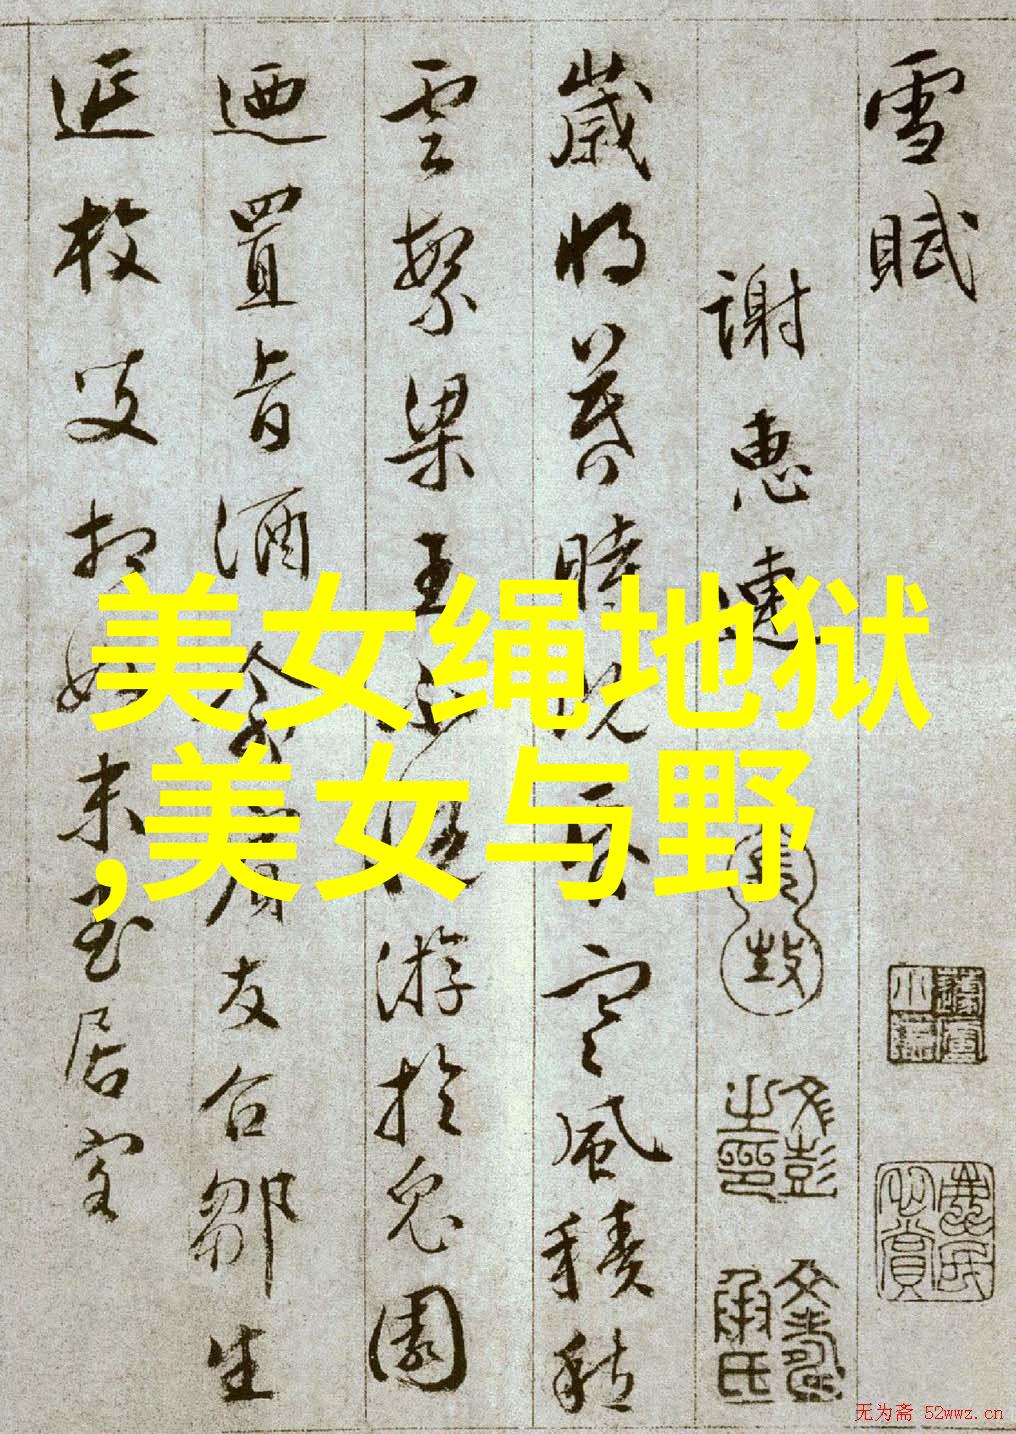 雪賦
謝惠連
歲將暮時既昏寒風積愁
雲繁梁王不悅游於兔園
迺置旨酒命賓友召鄒生
延枚叟相如末至居客
美女绳地狱
,美女与野
文彭之印
文壽承氏
无为斋 52wwz.cn